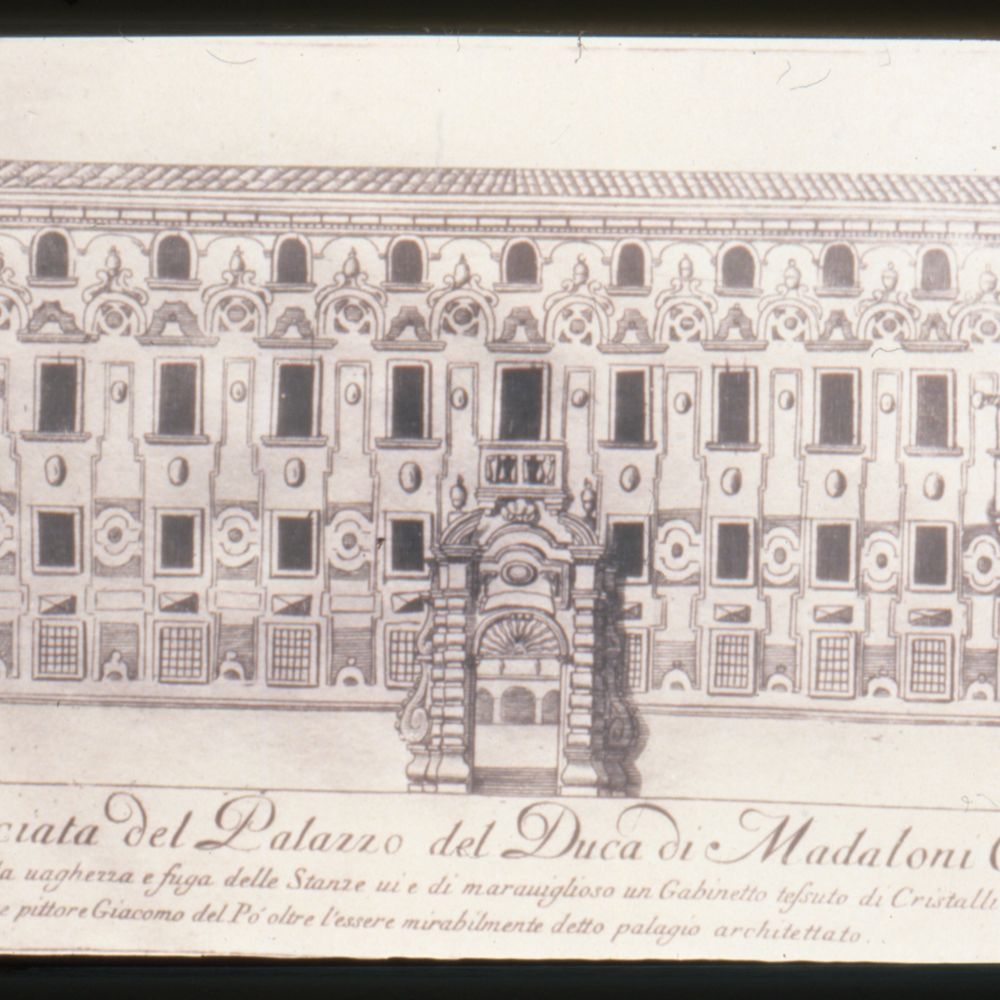 ciata del Palazzo del Duca di Madaloni C
la uaghezza e fuga delle Stanze ui e di marauiglioso un Gabinetto teſsuto di Cristalli
e pittore Giacomo del Pó oltre l'essere mirabilmente detto palagio architettato..